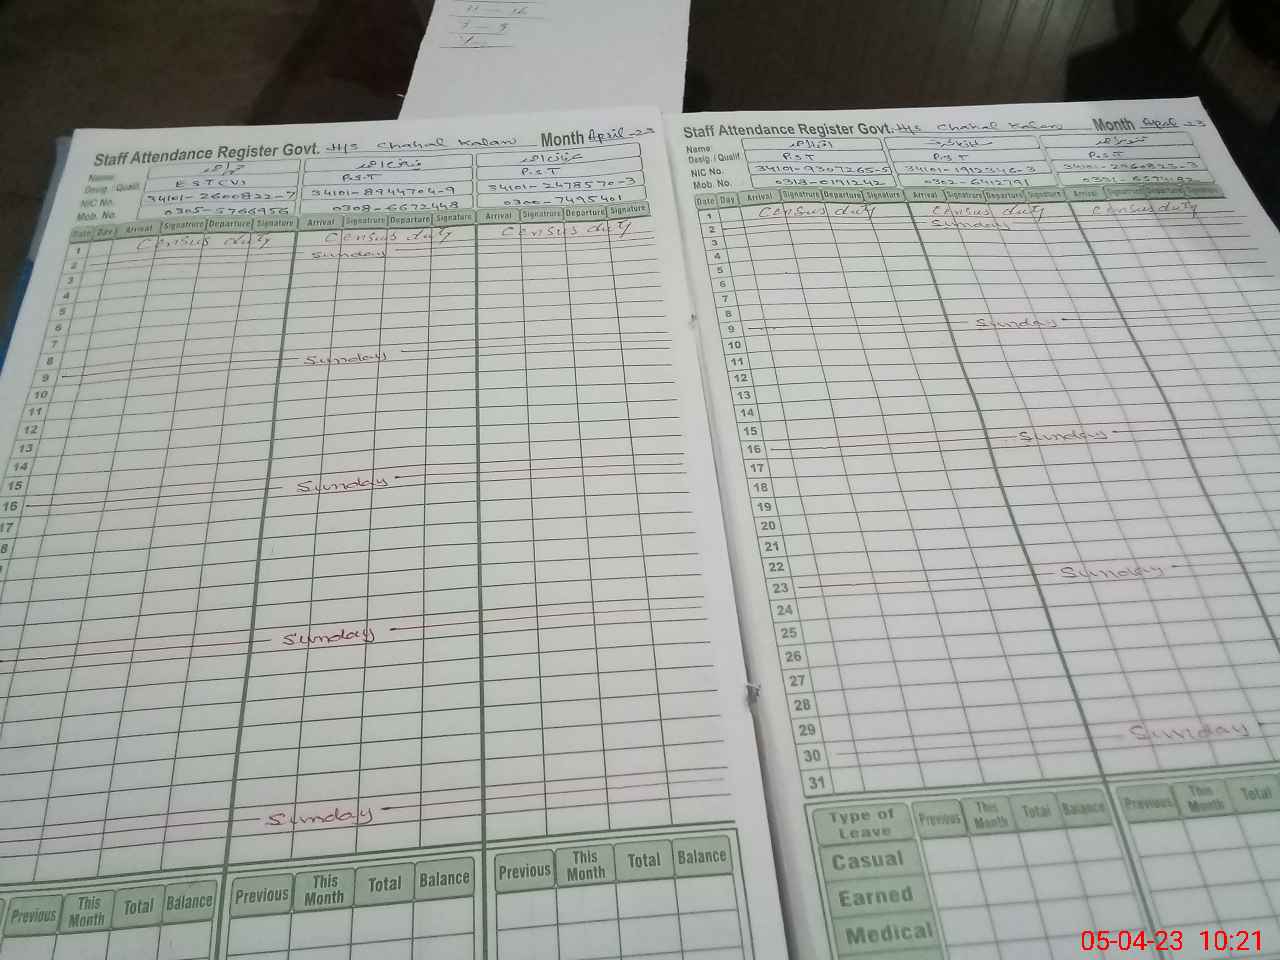 11 - 12
7 - 9
Staff Attendance Register Govt. H/S Chahal Kalan Month April-23
Name:
Desig. / Qualif. EST(V) P.S.T P.S.T
NIC No. 34101-2600822-7 34101-8944704-9 34101-2478570-3
Mob. No. 0305-5766956 0308-6672448 0300-7495401
Date Day Arrival Signatrure Departure Signature Arrival Signatrure Departure Signature Arrival Signatrure Departure Signature
1 Census duty Census duty Census duty
2 Sunday
3
4
5
6
7
8
9 Sunday
10
11
12
13
14
15
16 Sunday
17
8
Sunday
Sunday
Previous This Month Total Balance Previous This Month Total Balance Previous This Month Total Balance
Staff Attendance Register Govt. H/S Chahal Kalan Month April-23
Name
Desig. / Qualif. P.S.T P.S.T P.S.T
NIC No. 34101-9307265-5 34101-1912346-3
Mob. No. 0318-0191242 0302-6412791
Date Day Arrival Signatrure Departure Signature Arrival Signatrure Departure Signature Arrival Signatrure Departure Signature
1 Census duty Census duty Census duty
2 Sunday
3
4
5
6
7
8
9 Sunday
10
11
12
13
14
15
16 Sunday
17
18
19
20
21
22
23 Sunday
24
25
26
27
28
29
30 Sunday
31
Type of Leave Previous This Month Total Balance Previous This Month Total
Casual
Earned
Medical
05-04-23 10:21